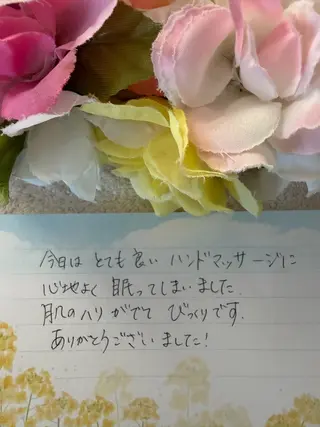 今日は とても良い ハンドマッサージに
心地よく 眠ってしまいました.
肌のハリ がでて びっくりです.
ありがとうございました!